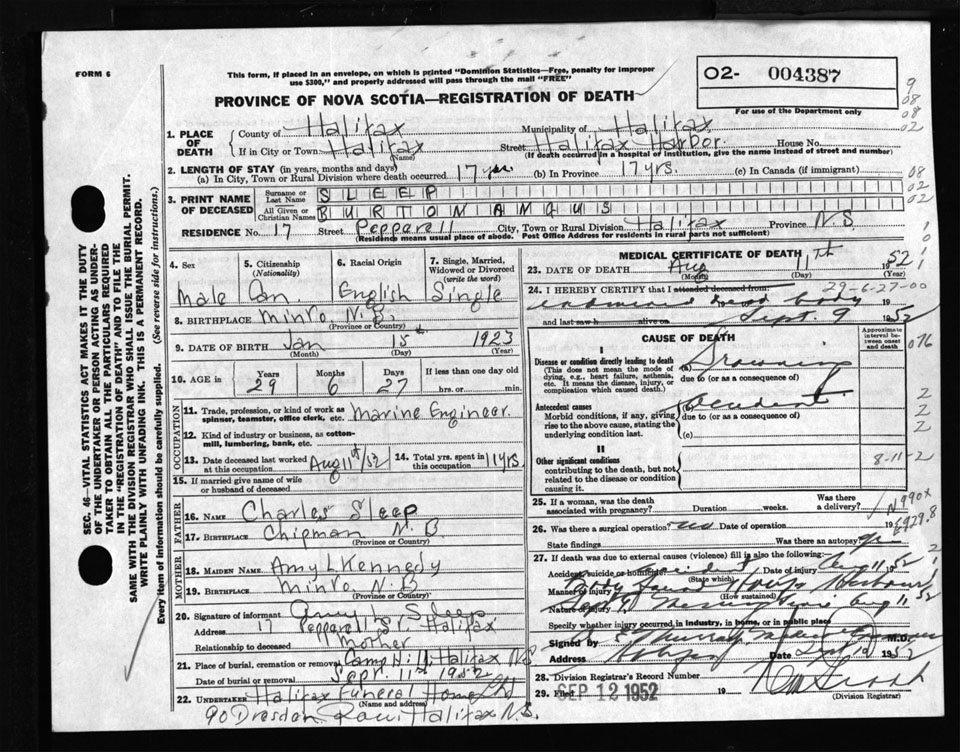 FORM 6
This form, if placed in an envelope, on which is printed "Dominion Statistics—Free, penalty for improper
use $300," and properly addressed will pass through the mail "FREE"
O2- 004387
For use of the Department only
PROVINCE OF NOVA SCOTIA—REGISTRATION OF DEATH
9
08
08
02
1. PLACE OF DEATH
County of Halifax Municipality of Halifax
If in City or Town Halifax (Name) Street Halifax Harbor House No.
(If death occurred in a hospital or institution, give the name instead of street and number)
2. LENGTH OF STAY (in years, months and days)
(a) In City, Town or Rural Division where death occurred 17 yrs. (b) In Province 17 yrs. (c) In Canada (if immigrant)
08
02
02
3. PRINT NAME OF DECEASED
Surname or Last Name SLEEP
All Given or Christian Names BURTON AMQUS
RESIDENCE No. 17 Street Pepperell City, Town or Rural Division Halifax Province N.S.
(Residence means usual place of abode. Post Office Address for residents in rural parts not sufficient)
4. Sex
Male
5. Citizenship
(Nationality)
Can.
6. Racial Origin
English
7. Single, Married,
Widowed or Divorced
(write the word)
Single
8. BIRTHPLACE Minto N.B.
(Province or Country)
9. DATE OF BIRTH Jan 15 1923
(Month) (Day) (Year)
10. AGE in Years Months Days If less than one day old
29 6 27 hrs. or min.
OCCUPATION
11. Trade, profession, or kind of work as
spinner, teamster, office clerk, etc. Marine Engineer
12. Kind of industry or business, as cotton-
mill, lumbering, bank, etc.
13. Date deceased last worked
at this occupation Aug 11th/52
14. Total yrs. spent in
this occupation 11 yrs.
15. If married give name of wife
or husband of deceased
FATHER
16. NAME Charles Sleep
17. BIRTHPLACE Chipman N.B
(Province or Country)
MOTHER
18. MAIDEN NAME Amy L. Kennedy
19. BIRTHPLACE Minto N.B
(Province or Country)
20. Signature of informant Amy L. Sleep
Address 17 Pepperell St. Halifax
Relationship to deceased Mother
21. Place of burial, cremation or removal Camp Hill, Halifax N.S
Date of burial or removal Sept. 11th 1952
22. UNDERTAKER Halifax Funeral Home Ltd
(Name and address)
90 Dresden Row Halifax N.S.
MEDICAL CERTIFICATE OF DEATH
23. DATE OF DEATH Aug 11th 1952
(Month) (Day) (Year)
24. I HEREBY CERTIFY that I attended deceased from: 29-6-27-00
dead body 19
and last saw h alive on Sept. 9 1952
CAUSE OF DEATH
Approximate interval between onset and death
076
I
Disease or condition directly leading to death
(This does not mean the mode of
dying, e.g., heart failure, asthenia,
etc. It means the disease, injury, or
complication which caused death.)
(a) Drowning
due to (or as a consequence of)
Antecedent causes
Morbid conditions, if any, giving
rise to the above cause, stating the
underlying condition last.
(b) Accident
due to (or as a consequence of)
(c)
2
2
2
II
Other significant conditions
contributing to the death, but not
related to the disease or condition
causing it.
8-11-2
25. If a woman, was the death
associated with pregnancy? Duration weeks. Was there a delivery?
N990X
26. Was there a surgical operation? no Date of operation 19
E929.8
State findings Was there an autopsy? yes
27. If death was due to external causes (violence) fill in also the following:
Accident, suicide or homicide? Accident Date of injury Aug 11 1952
(State which)
Manner of injury Body found Harbour
(How sustained)
Nature of injury Aug 11 52
Specify whether injury occurred in industry, in home, or in public place
Signed by Murray M.D.
Address Date Sept 10 1952
28. Division Registrar's Record Number
29. Filed SEP 12 1952 19
(Division Registrar)
SEC. 46—VITAL STATISTICS ACT MAKES IT THE DUTY
OF THE UNDERTAKER OR PERSON ACTING AS UNDER-
TAKER TO OBTAIN ALL THE PARTICULARS REQUIRED
IN THE "REGISTRATION OF DEATH" AND TO FILE THE
SAME WITH THE DIVISION REGISTRAR WHO SHALL ISSUE THE BURIAL PERMIT.
WRITE PLAINLY WITH UNFADING INK. THIS IS A PERMANENT RECORD.
Every item of information should be carefully supplied. (See reverse side for instructions.)